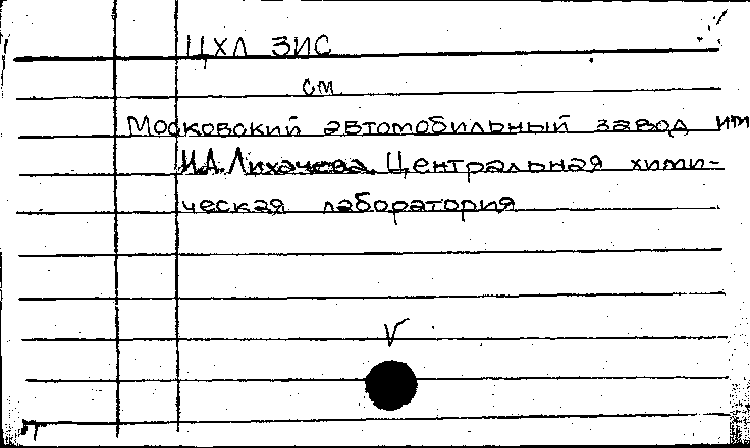 ЦХЛ ЗИС
см.
Московский автомобильный завод им
И.А. Лихачева. Центральная хими-
ческая лаборатория